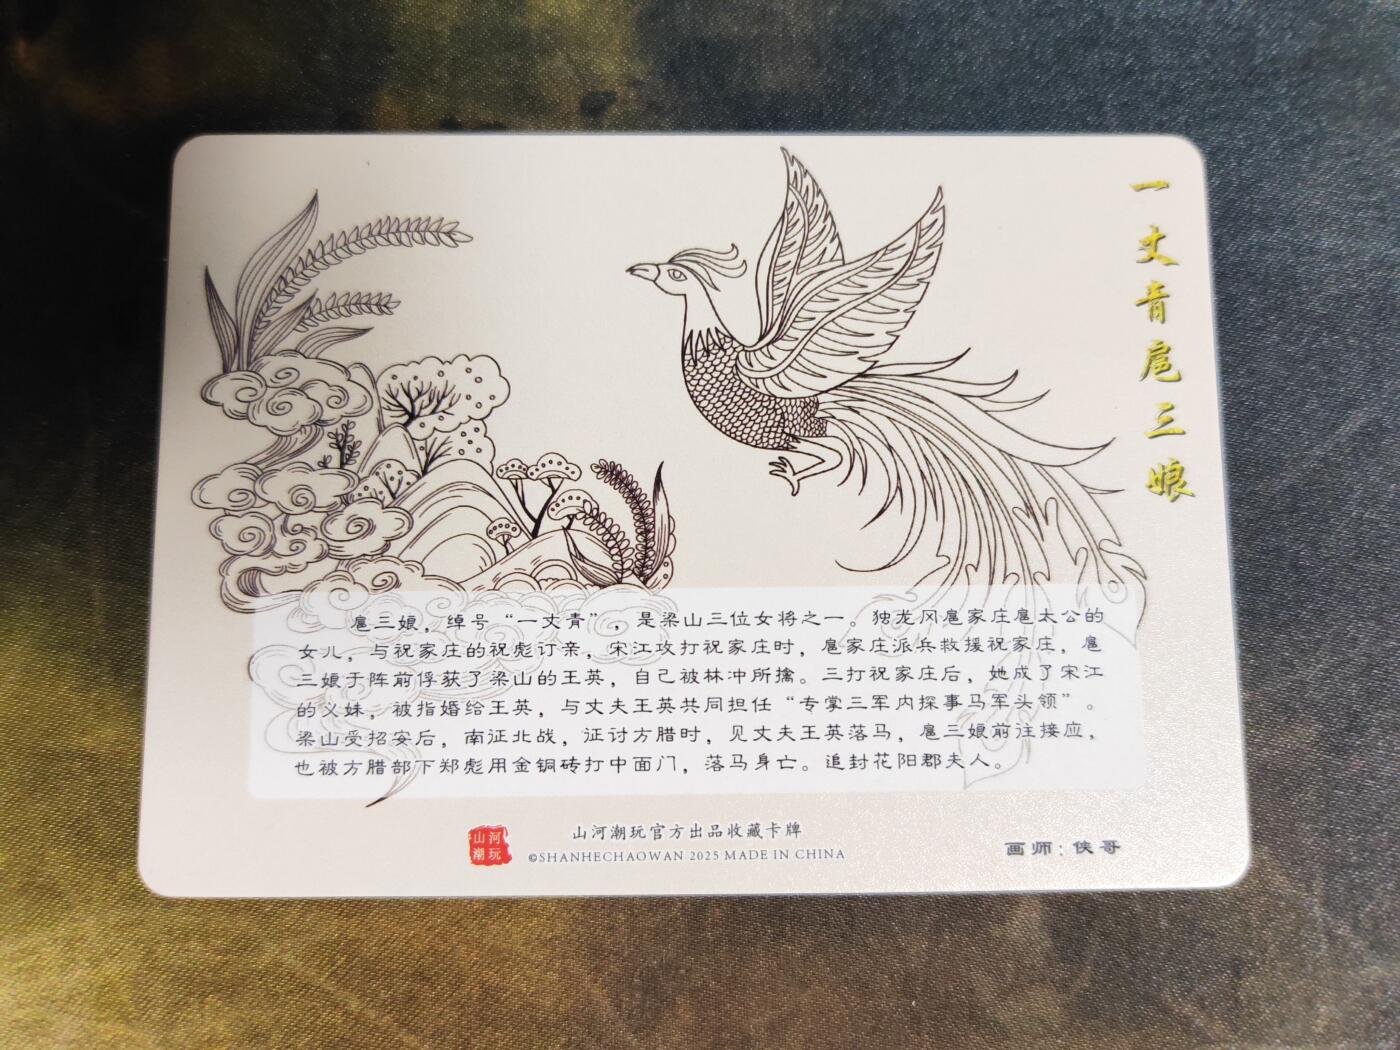 一丈青扈三娘
扈三娘，绰号“一丈青”，是梁山三位女将之一。独龙冈扈家庄扈太公的
女儿，与祝家庄的祝彪订亲，宋江攻打祝家庄时，扈家庄派兵救援祝家庄，扈
三娘于阵前俘获了梁山的王英，自己被林冲所擒。三打祝家庄后，她成了宋江
的义妹，被指婚给王英，与丈夫王英共同担任“专掌三军内探事马军头领”。
梁山受招安后，南征北战，征讨方腊时，见丈夫王英落马，扈三娘前往接应，
也被方腊部下郑彪用金铜砖打中面门，落马身亡。追封花阳郡夫人。
山河
潮玩
山河潮玩官方出品收藏卡牌
©SHANHECHAOWAN 2025 MADE IN CHINA
画师：侠哥